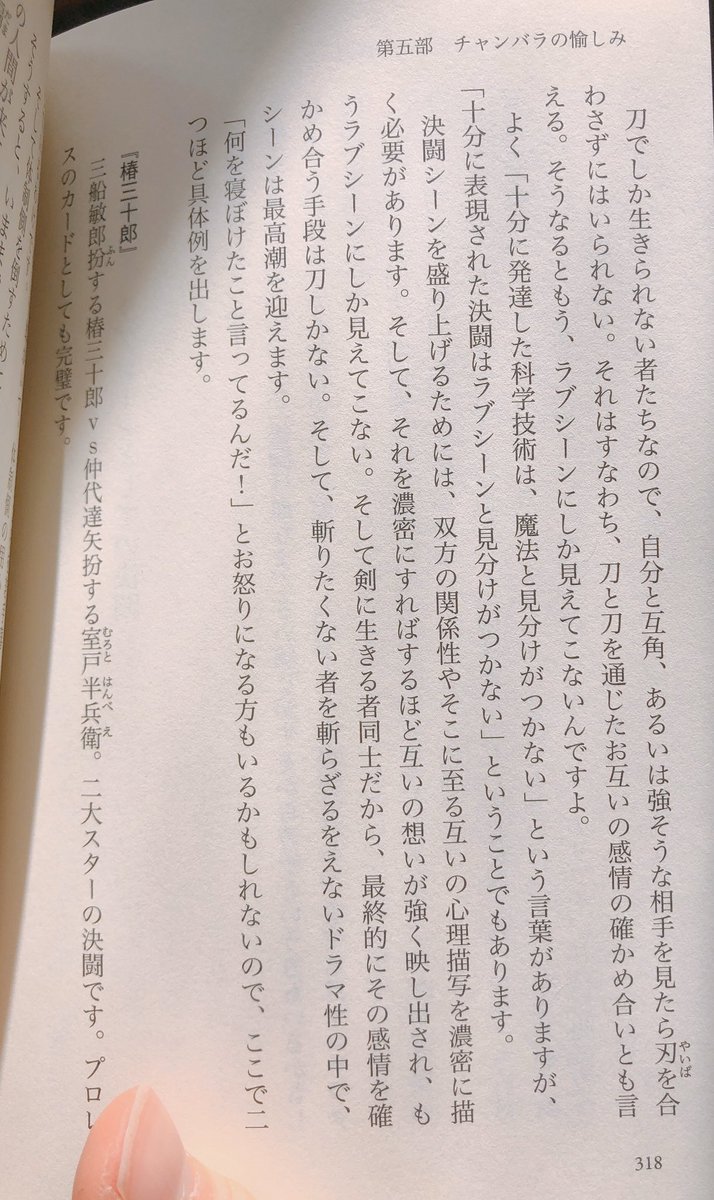 第五部　チャンバラの愉しみ
刀でしか生きられない者たちなので、自分と互角、あるいは強そうな相手を見たら刃を合
やいば
わさずにはいられない。それはすなわち、刀と刀を通じたお互いの感情の確かめ合いとも言
える。そうなるともう、ラブシーンにしか見えてこないんですよ。
よく「十分に発達した科学技術は、魔法と見分けがつかない」という言葉がありますが、
「十分に表現された決闘はラブシーンと見分けがつかない」ということでもあります。
決闘シーンを盛り上げるためには、双方の関係性やそこに至る互いの心理描写を濃密に描
く必要があります。そして、それを濃密にすればするほど互いの想いが強く映し出され、も
うラブシーンにしか見えてこない。そして剣に生きる者同士だから、最終的にその感情を確
かめ合う手段は刀しかない。そして、斬りたくない者を斬らざるをえないドラマ性の中で、
シーンは最高潮を迎えます。
「何を寝ぼけたこと言ってるんだ！」とお怒りになる方もいるかもしれないので、ここで二
つほど具体例を出します。
『椿三十郎』
三船敏郎扮する椿三十郎ｖｓ仲代達矢扮する室戸半兵衛。二大スターの決闘です。プロレ
ふん
むろと はんべえ
スのカードとしても完璧です。
318